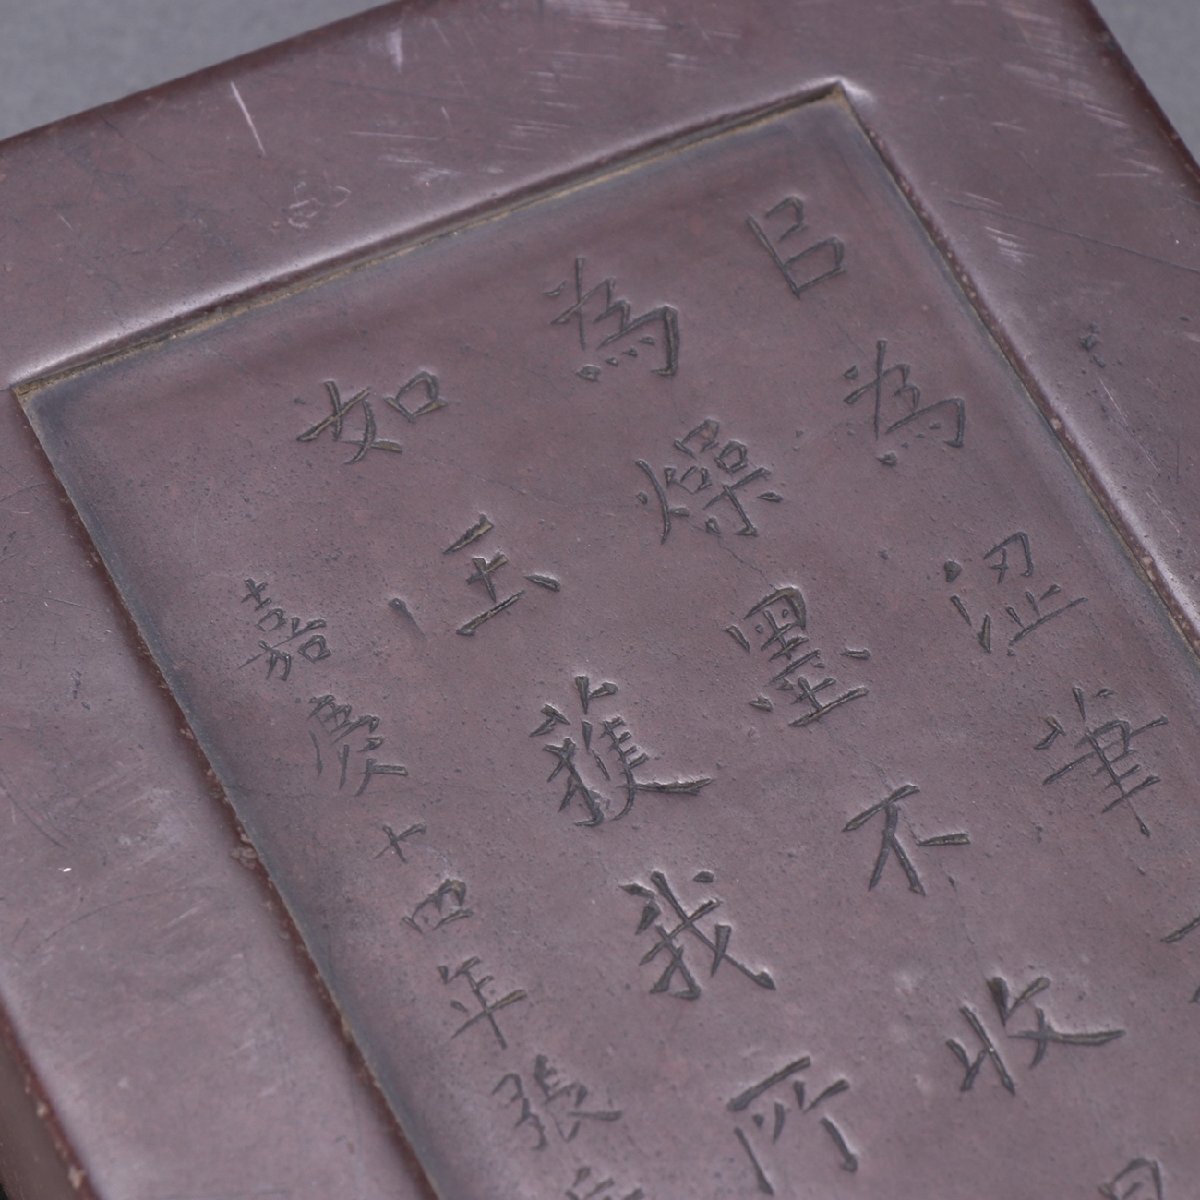 曰為溼筆
為燥墨不收
如玉獲我所
嘉慶十四年張